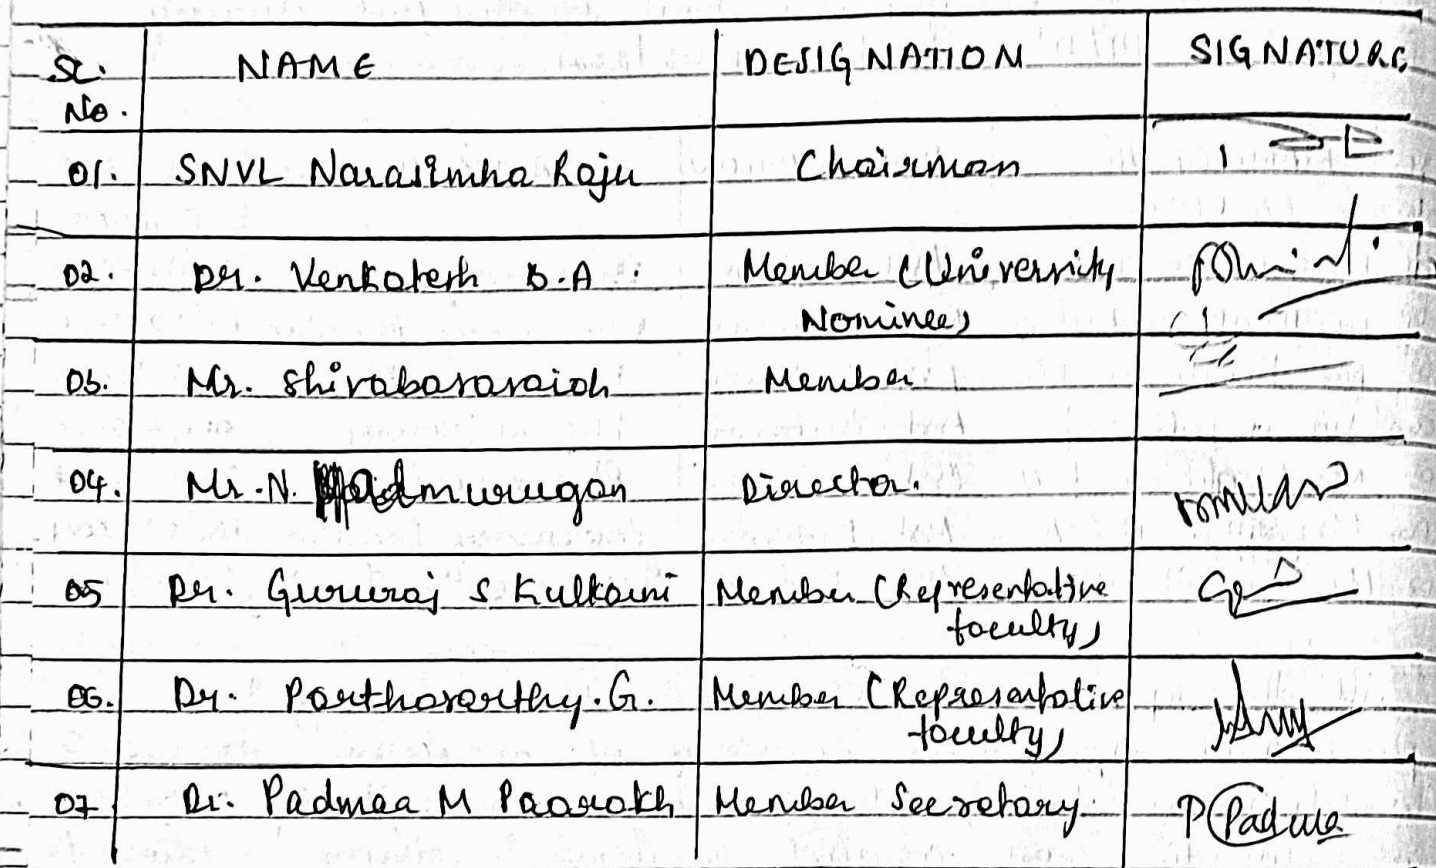 SL. NAME DESIGNATION SIGNATURE
No.
01. SNVL Narasimha Raju Chairman
02. Dr. Venkatesh B.A Member (University
Nominee)
03. Mr. Shivabasavaiah Member
04. Mr. N. Padmurugan Director.
05 Dr. Gururaj S Kulkarni Member (Representative
faculty)
06. Dr. Parthasarthy. G. Member (Representative
faculty)
07 Dr. Padmaa M Paarakh Member Secretary
P Padmaa